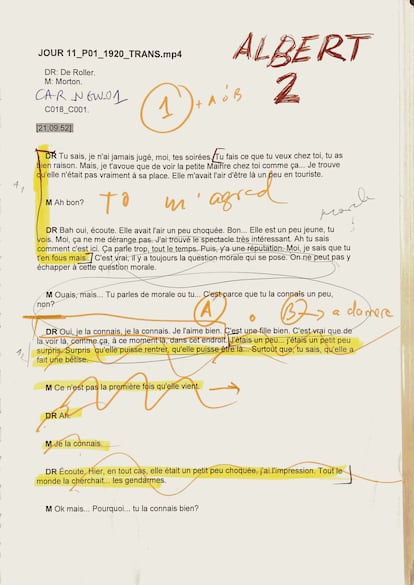 JOUR 11_P01_1920_TRANS.mp4
ALBERT
2
DR: De Roller.
M: Morton.
CAR_NEW01
C018_C001.
1 + A ó B
[21:09:52]
DR Tu sais, je n'ai jamais jugé, moi, tes soirées. Tu fais ce que tu veux chez toi, tu as
bien raison. Mais, je t'avoue que de voir la petite Mairire chez toi comme ça... Je trouve
qu'elle n'était pas vraiment à sa place. Elle m'avait l'air d'être là un peu en touriste.
M Ah bon?
TO m'agred
morale
DR Bah oui, écoute. Elle avait l'air un peu choquée. Bon... Elle est un peu jeune, tu
vois. Moi, ça ne me dérange pas. J'ai trouvé le spectacle très intéressant. Ah tu sais
comment c'est ici. Ça parle trop, tout le temps. Puis, y'a une réputation. Moi, je sais que tu
t'en fous mais. C'est vrai, il y a toujours la question morale qui se pose. On ne peut pas y
échapper à cette question morale.
M Ouais, mais... Tu parles de morale ou tu... C'est parce que tu la connais un peu,
non?
A o B → a domere
DR Oui, je la connais, je la connais. Je l'aime bien. C'est une fille bien. C'est vrai que de
la voir là, comme ça, à ce moment là, dans cet endroit. J'étais un peu... j'étais un petit peu
surpris. Surpris qu'elle puisse rentrer, qu'elle puisse être là... Surtout que, tu sais, qu'elle a
fait une bêtise.
M Ce n'est pas la première fois qu'elle vient.
DR Ah.
M Je la connais.
DR Écoute, Hier, en tout cas, elle était un petit peu choquée, j'ai l'impression. Tout le
monde la cherchait... les gendarmes.
M Ok mais... Pourquoi... tu la connais bien?